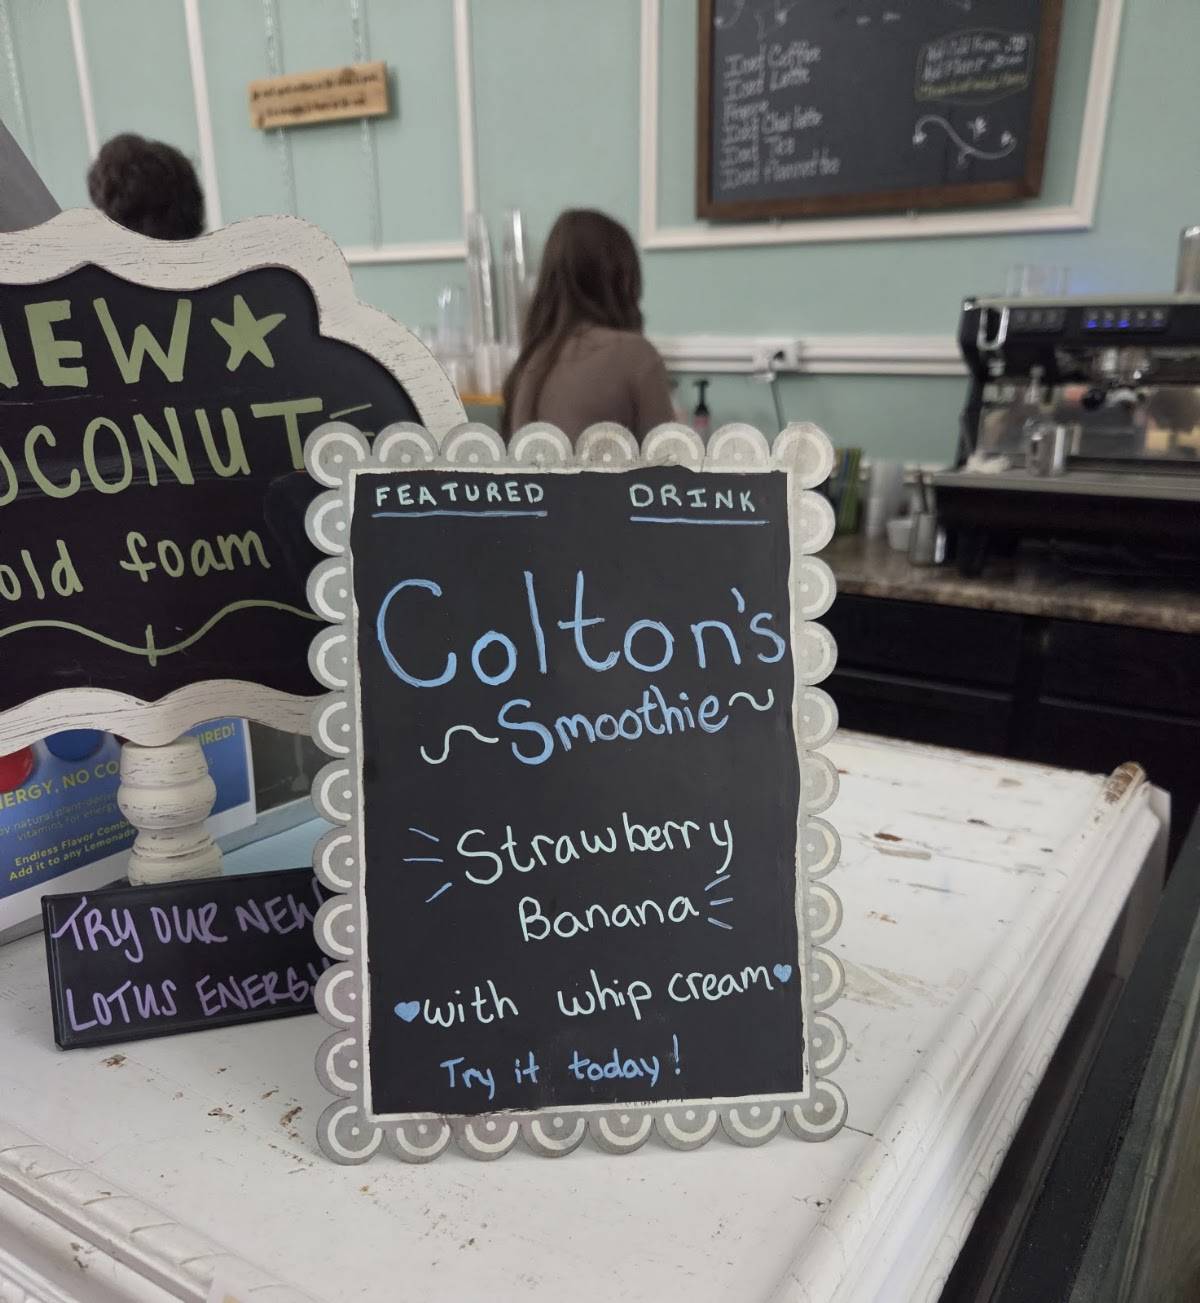 Iced Coffee
Iced Latte
Iced Chai latte
Iced Tea
NEW
COCONUT
cold foam
FEATURED DRINK
Colton's
~Smoothie~
Strawberry
Banana
with whip cream
Try it today!
IRED!
ERGY, NO CO
natural plant-deriv
vitamins for energy
Endless Flavor Comb
Add it to any Lemonade
TRY OUR NEW
LOTUS ENERGY